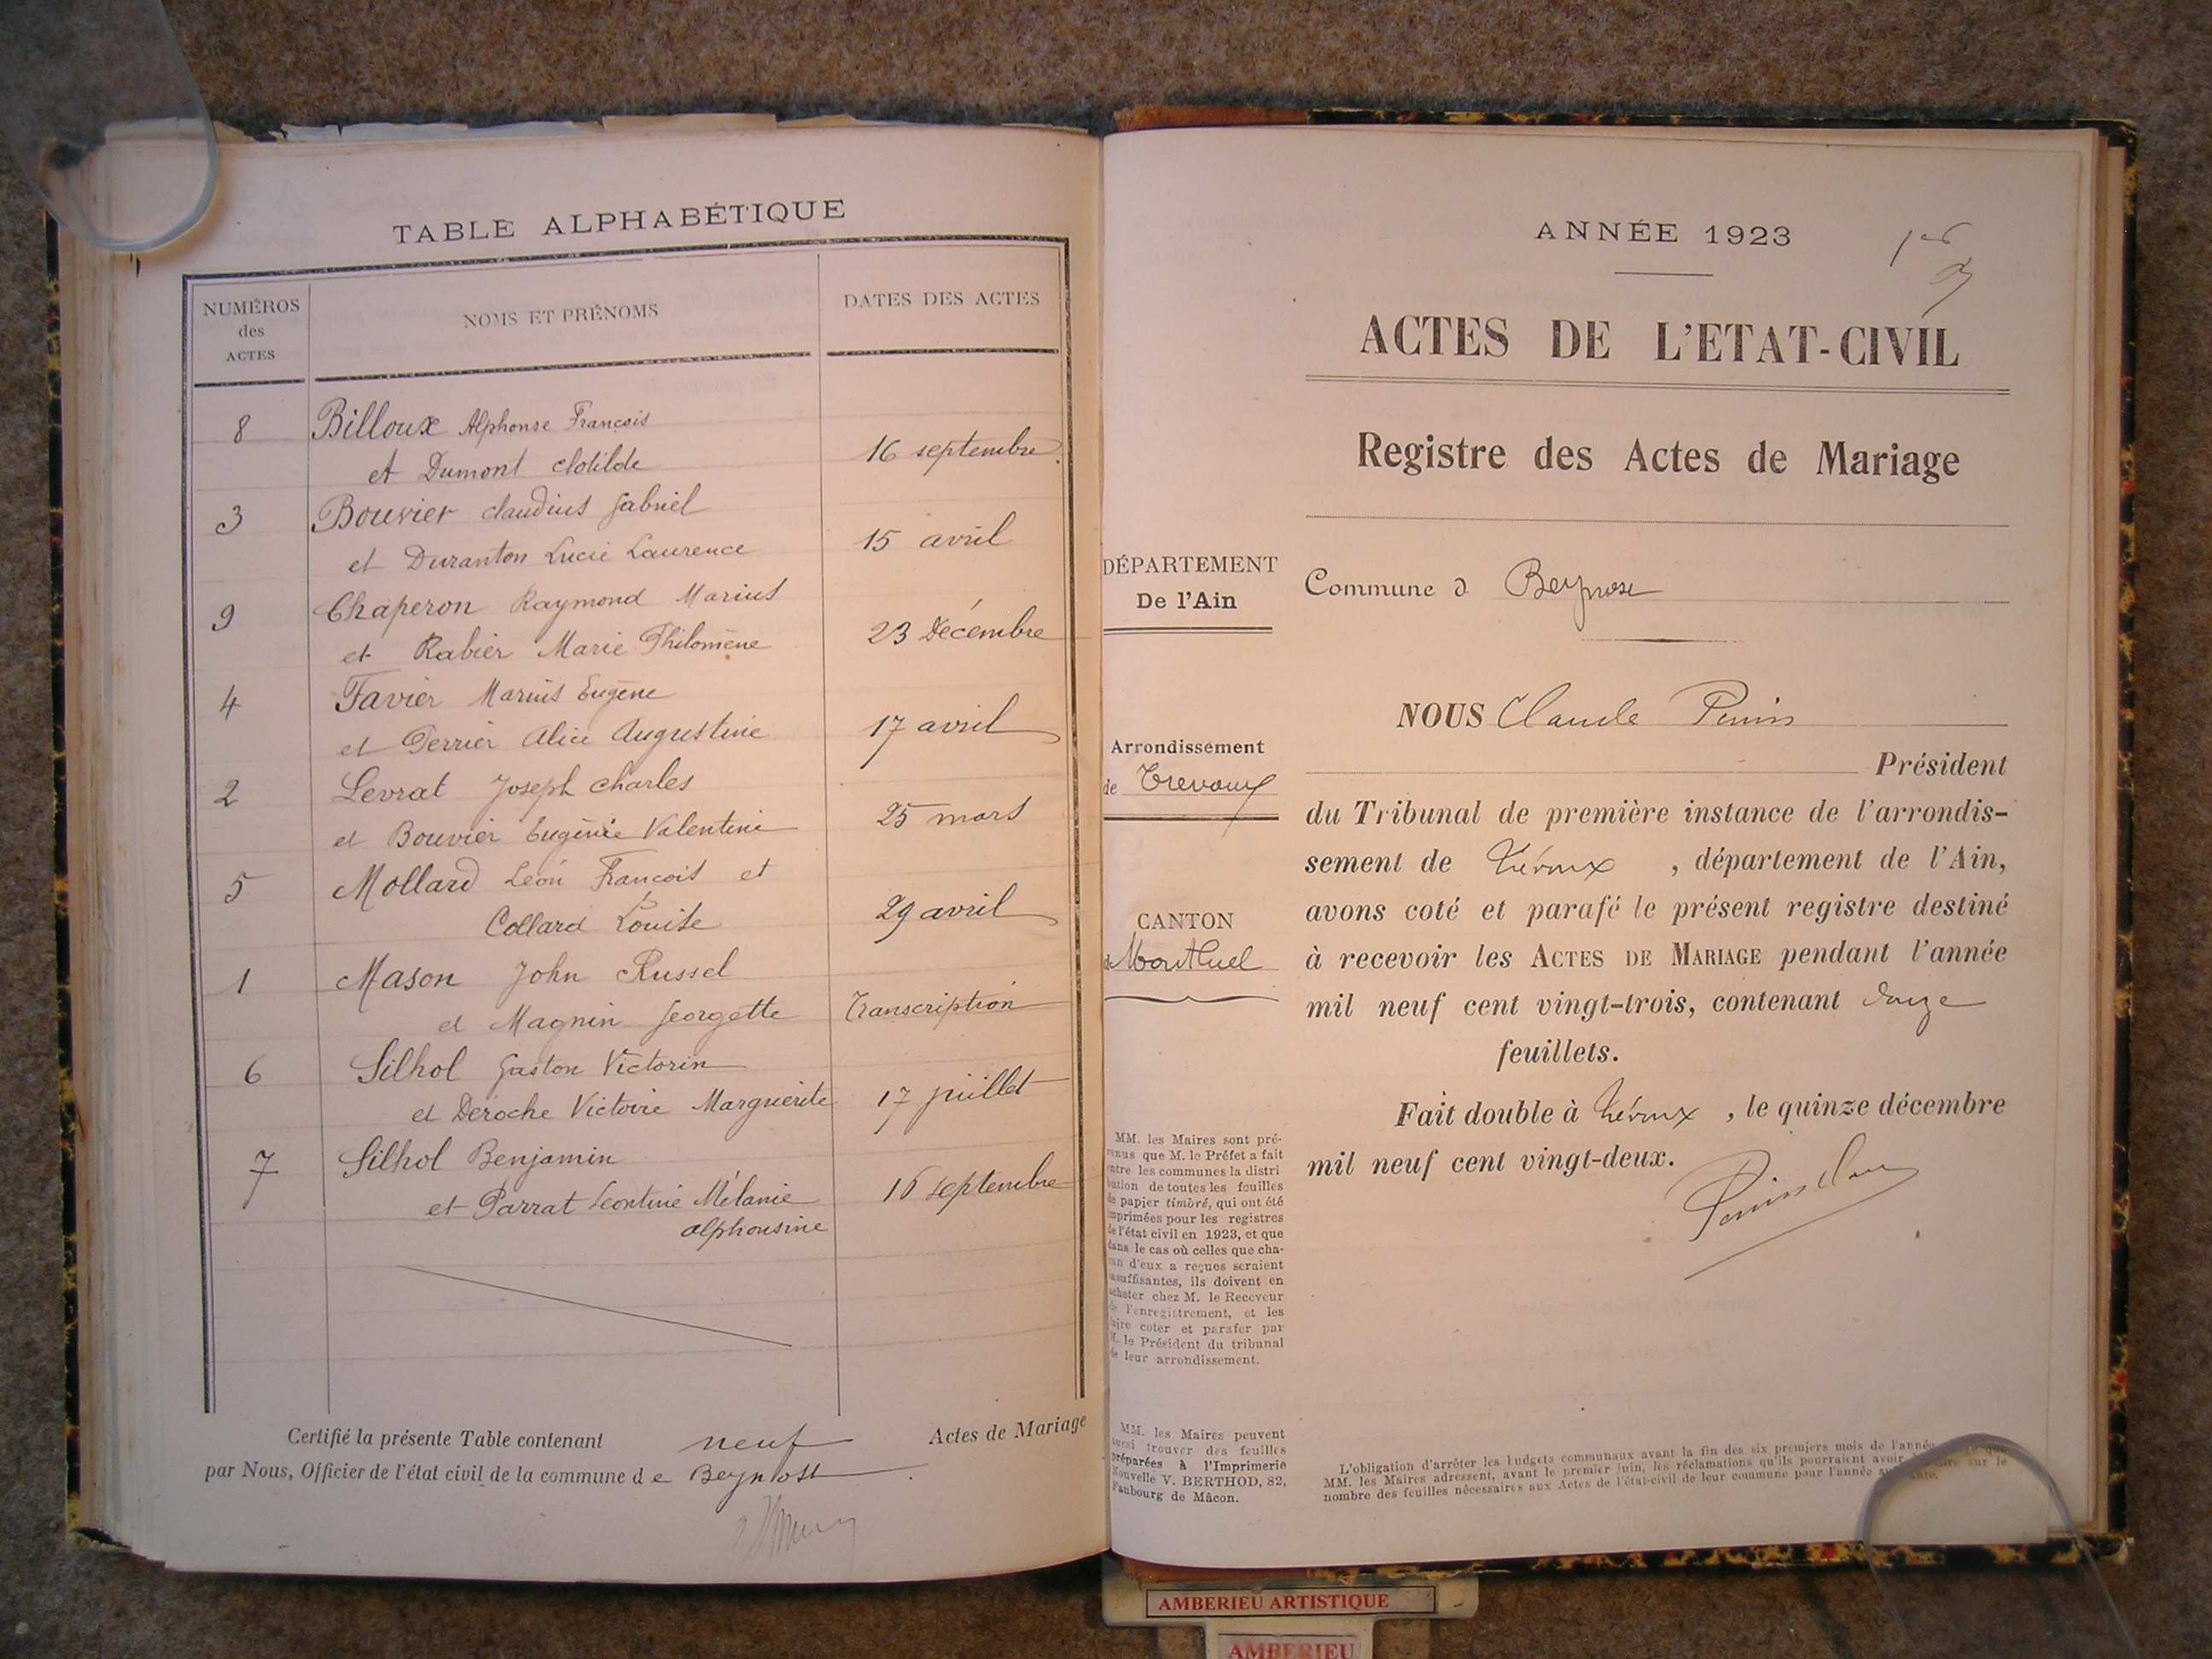 TABLE ALPHABÉTIQUE
NUMÉROS des ACTES
NOMS ET PRÉNOMS
DATES DES ACTES
8 Billoux Alphonse François
et Dumont Clotilde 16 septembre
3 Bouvier Claudius Gabriel
et Duranton Lucie Laurence 15 avril
9 Chaperon Raymond Marius
et Rabier Marie Philomène 23 Décembre
4 Favier Marius Eugène
et Perrier Alice Augustine 17 avril
2 Levrat Joseph Charles
et Bouvier Eugénie Valentine 25 mars
5 Mollard Léon François et
Collard Louise 29 avril
1 Mason John Russel
et Magnin Georgette Transcription
6 Silhol Gaston Victorin
et Deroche Victoire Marguerite 17 juillet
7 Silhol Benjamin
et Parrat Leontine Mélanie 16 septembre
alphonsine
Certifié la présente Table contenant neuf Actes de Mariage
par Nous, Officier de l'état civil de la commune de Beynost
ANNÉE 1923
ACTES DE L'ETAT-CIVIL
Registre des Actes de Mariage
DÉPARTEMENT
De l'Ain
Commune d Beynost
NOUS Claude
Arrondissement
de Trevoux
Président
du Tribunal de première instance de l'arrondis-
sement de Trévoux, département de l'Ain,
avons coté et parafé le présent registre destiné
CANTON
de Montluel
à recevoir les ACTES DE MARIAGE pendant l'année
mil neuf cent vingt-trois, contenant
feuillets.
Fait double à Trévoux, le quinze décembre
mil neuf cent vingt-deux.
MM. les Maires sont pré-
venus que M. le Préfet a fait
entre les communes la distri
bution de toutes les feuilles
de papier timbré, qui ont été
imprimées pour les registres
de l'état civil en 1923, et que
dans le cas où celles que cha-
cun d'eux a reçues seraient
insuffisantes, ils doivent en
acheter chez M. le Receveur
de l'enregistrement, et les
faire coter et parafer par
M. le Président du tribunal
de leur arrondissement.
MM. les Maires peuvent
aussi trouver des feuilles
préparées à l'Imprimerie
Nouvelle V. BERTHOD, 82,
Faubourg de Mâcon.
L'obligation d'arrêter les budgets communaux avant la fin des six premiers mois de l'année
MM. les Maires adressent, avant le premier juin, les réclamations qu'ils pourraient avoir à faire sur le
nombre des feuilles nécessaires aux Actes de l'état-civil de leur commune pour l'année suivante.
AMBERIEU ARTISTIQUE
AMBERIEU